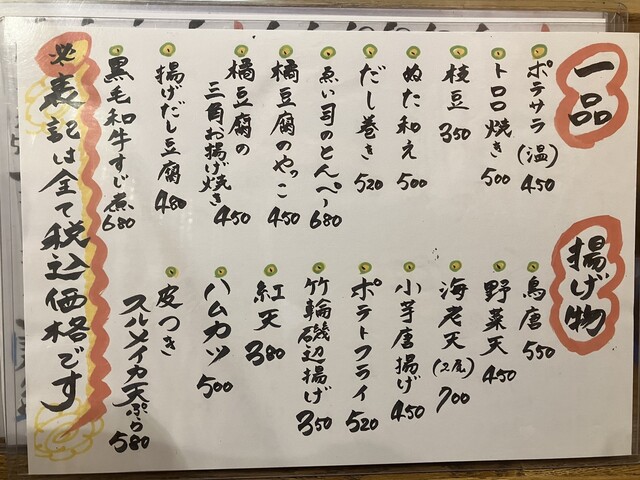 一品
ポテサラ(温) 450
トロロ焼き 500
枝豆 350
ぬた和え 500
だし巻き 520
ゑい司のとんぺー 680
橘豆腐のやっこ 450
橘豆腐の
三角お揚げ焼き 450
揚げだし豆腐 480
黒毛和牛すじ煮 680
揚げ物
鳥唐 550
野菜天 450
海老天(2尾) 700
小芋唐揚げ 450
ポテトフライ 520
竹輪磯辺揚げ 350
紅天 380
ハムカツ 500
皮つき
スルメイカ天ぷら 580
※表記は全て税込価格です